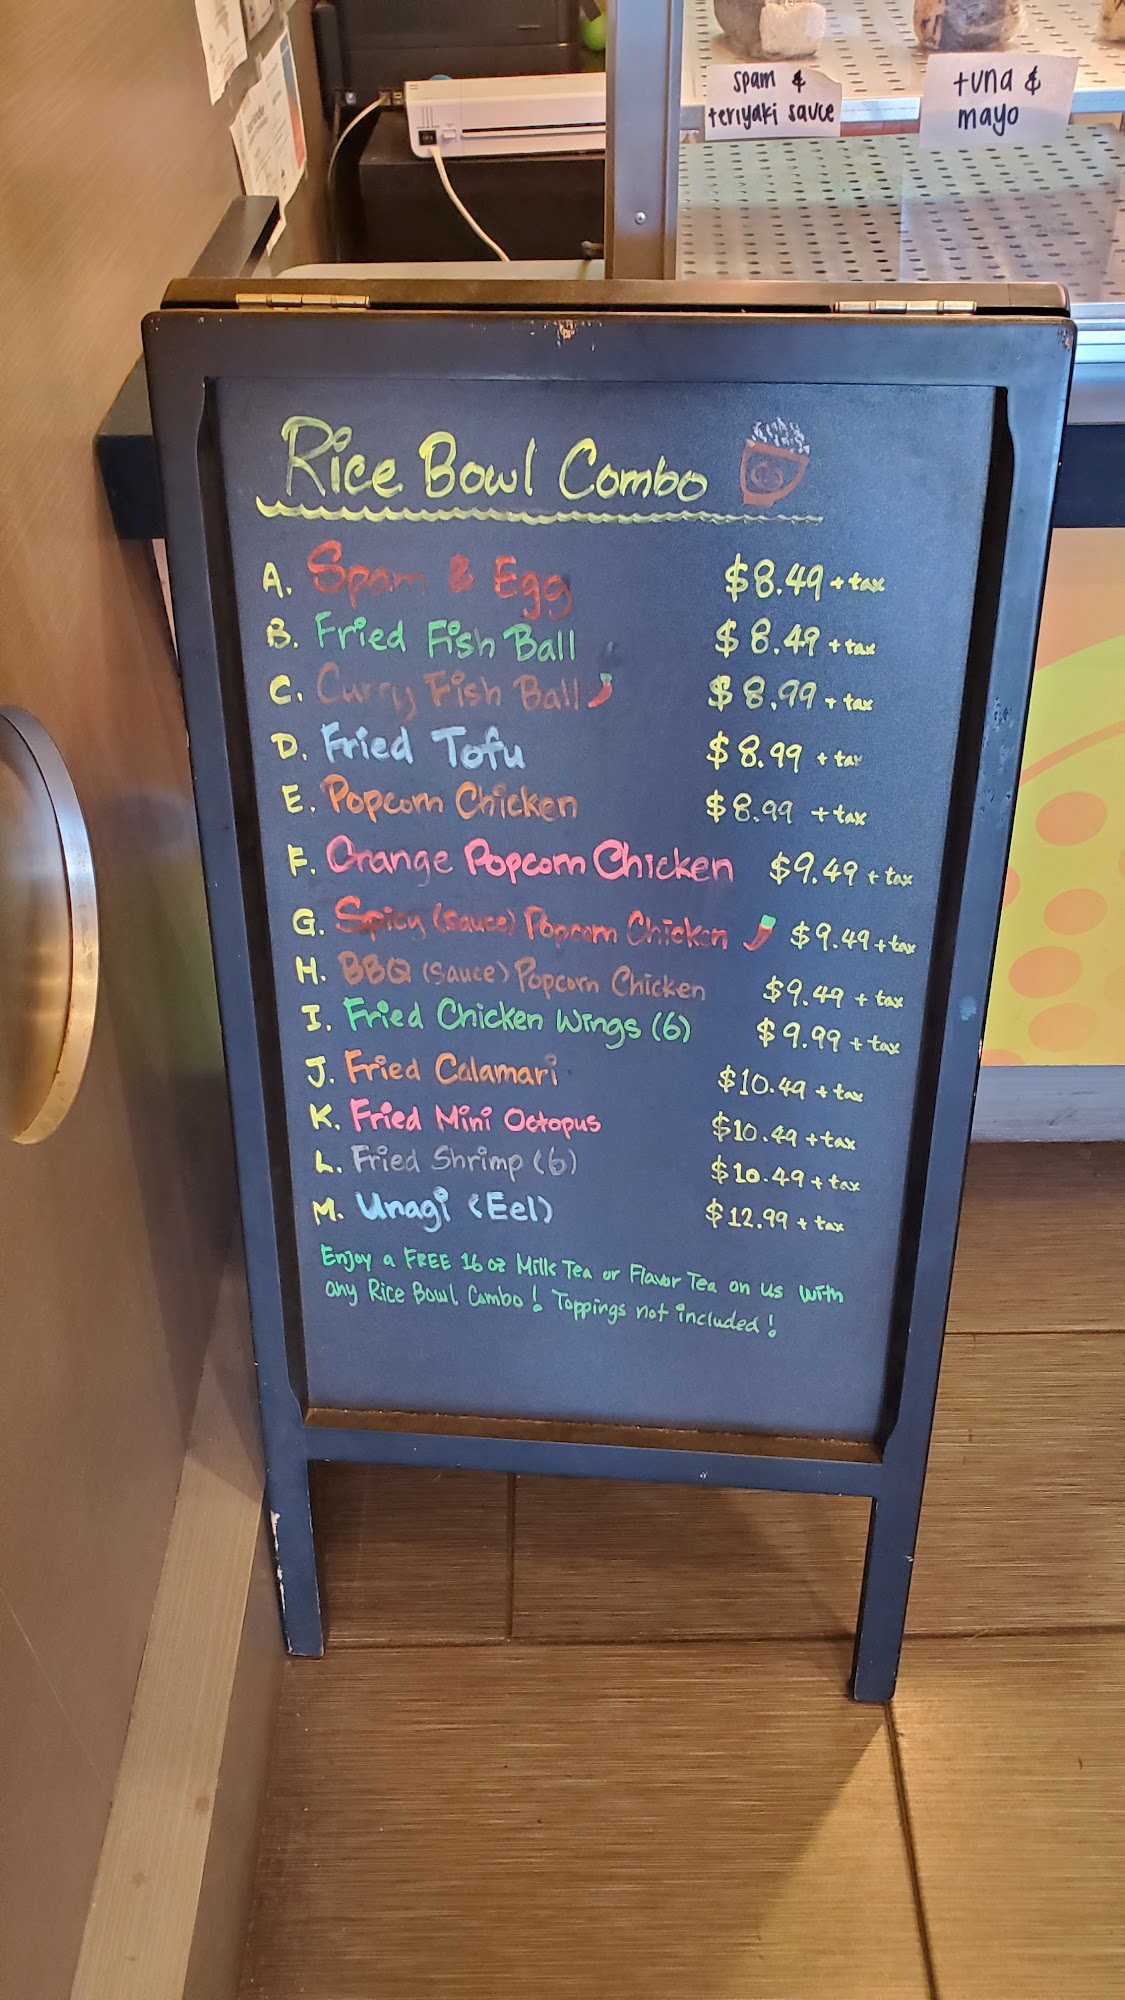 spam &
teriyaki sauce
tuna &
mayo
Rice Bowl Combo
A. Spam & Egg $8.49 + tax
B. Fried Fish Ball $8.49 + tax
C. Curry Fish Ball $8.99 + tax
D. Fried Tofu $8.99 + tax
E. Popcorn Chicken $8.99 + tax
F. Orange Popcorn Chicken $9.49 + tax
G. Spicy (sauce) Popcorn Chicken $9.49 + tax
H. BBQ (sauce) Popcorn Chicken $9.49 + tax
I. Fried Chicken Wings (6) $9.99 + tax
J. Fried Calamari $10.49 + tax
K. Fried Mini Octopus $10.49 + tax
L. Fried Shrimp (6) $10.49 + tax
M. Unagi (Eel) $12.99 + tax
Enjoy a FREE 16 oz Milk Tea or Flavor Tea on us with
any Rice Bowl Combo! Toppings not included!